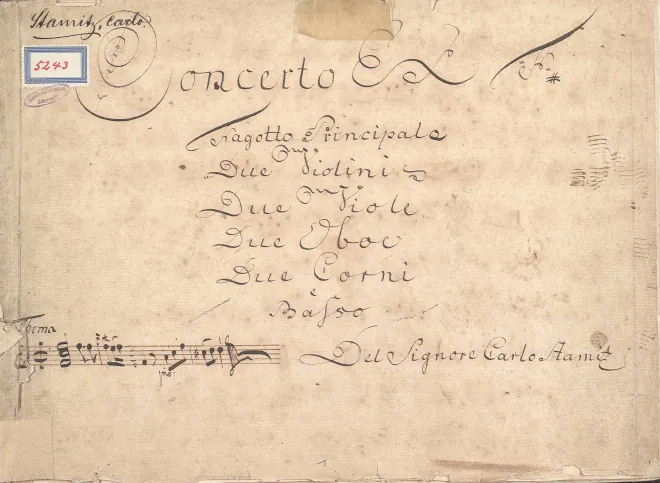 Stamitz, Carlo.
5243
Concerto Ex F.
Fagotto Principale
Due Violini
Due Viole
Due Oboe
Due Corni
e
Basso
Thema
pio:
Del Signore Carlo Stamitz